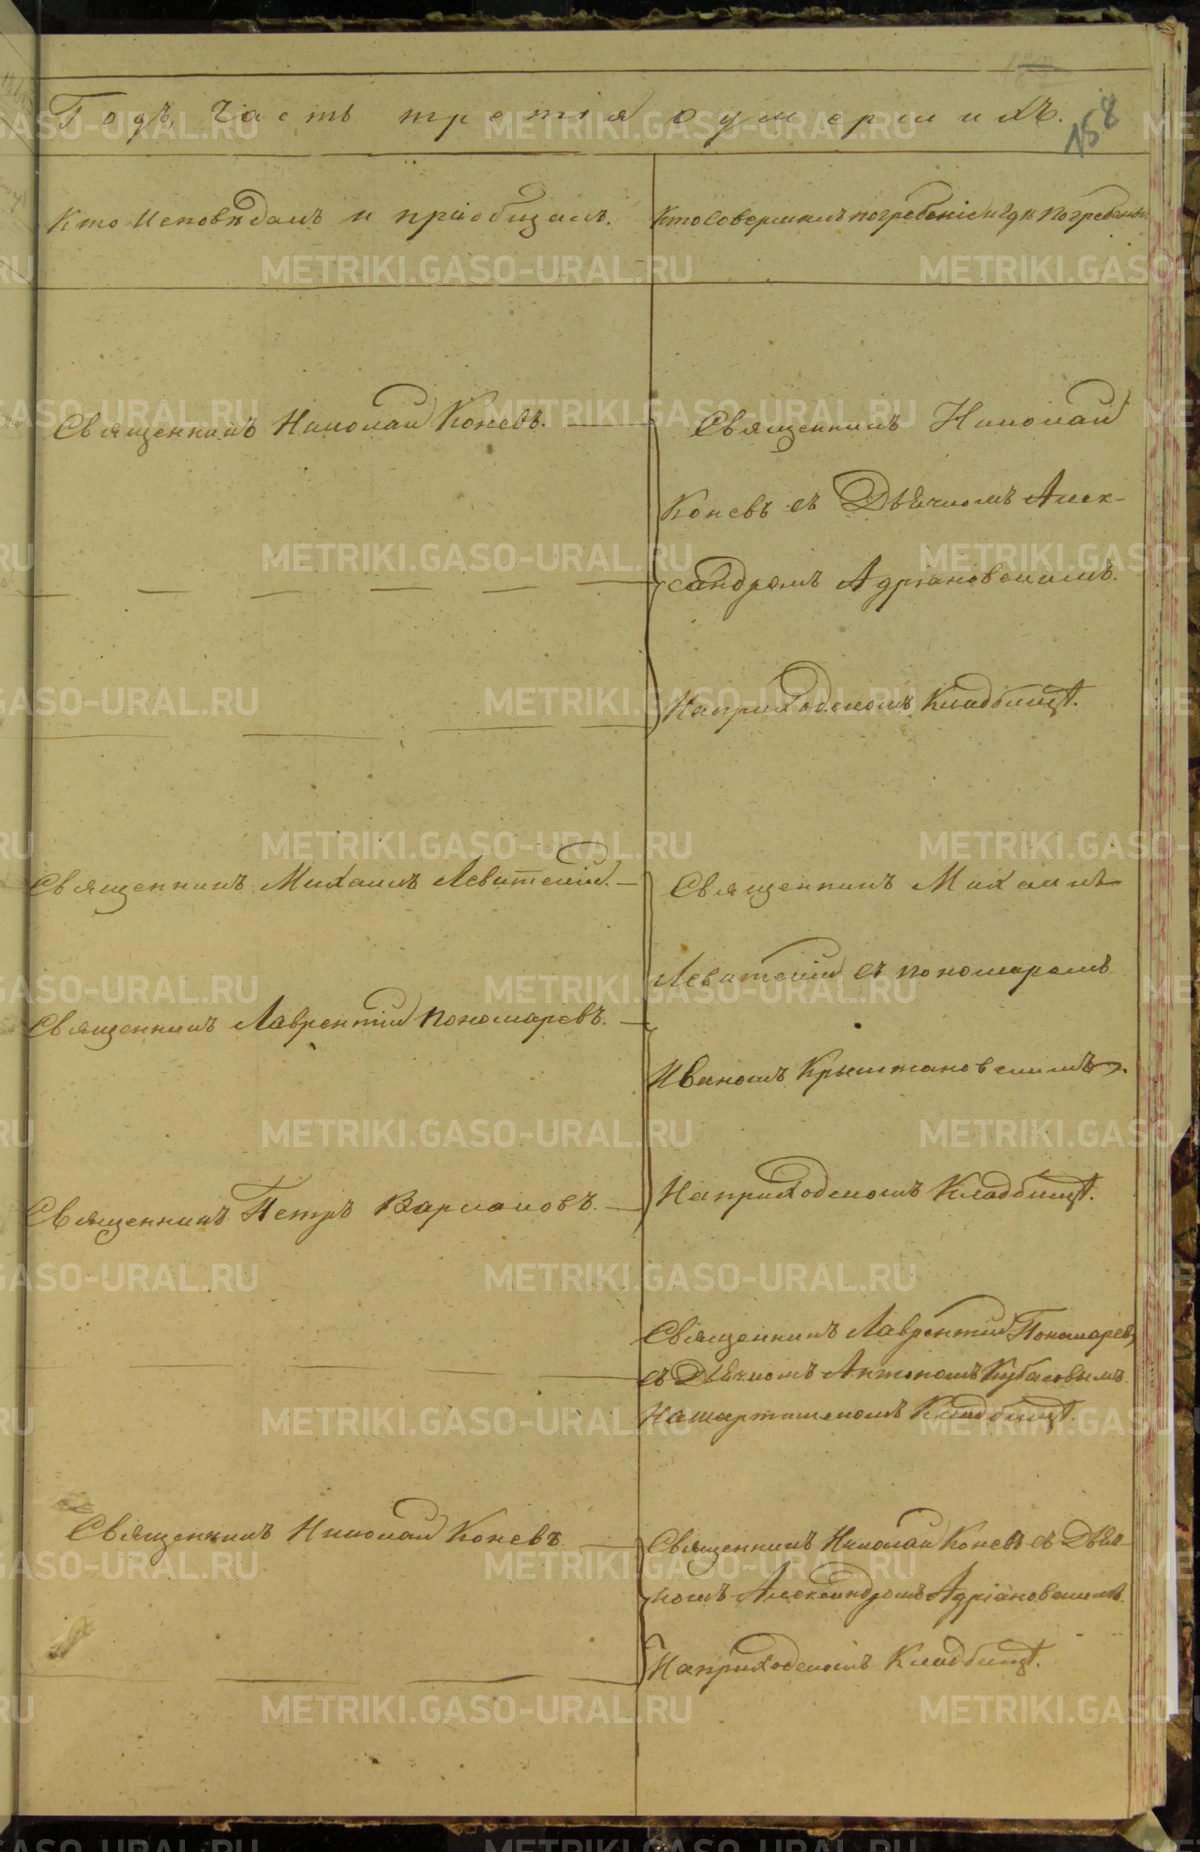 Годъ, Часть третія о умершихъ.
158
Кто Исповѣдалъ и пріобщалъ.
Кто Совершалъ погребеніе и гдѣ погребены
Священникъ Николай Коневъ.
Священникъ Николай
Коневъ съ Дьячкомъ Алек-
сандромъ Адріановскимъ.
На приходскомъ Кладбищѣ.
Священникъ Михаилъ Левитскій.
Священникъ Михаилъ
Левитскій съ пономаремъ
Священникъ Лаврентій Пономаревъ.
Иваномъ Крыштановскимъ.
Священникъ Петръ Варлаковъ.
На приходскомъ Кладбищѣ.
Священникъ Лаврентій Пономаревъ
съ Дьячкомъ Антономъ Кубасовымъ
На шарташскомъ Кладбищѣ.
Священникъ Николай Коневъ
Священникъ Николай Коневъ съ Дьяч-
комъ Александромъ Адріановскимъ
На приходскомъ Кладбищѣ.
METRIKI.GASO-URAL.RU